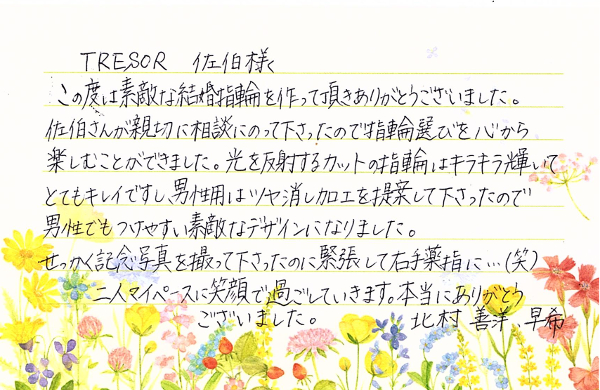 TRESOR 佐伯様
この度は素敵な結婚指輪を作って頂きありがとうございました。
佐伯さんが親切に相談にのって下さったので指輪選びを心から
楽しむことができました。光を反射するカットの指輪はキラキラ輝いて
とてもキレイですし、男性用はツヤ消し加工を提案して下さったので
男性でもつけやすい素敵なデザインになりました。
せっかく記念写真を撮って下さったのに緊張して右手薬指に…(笑)
二人マイペースに笑顔で過ごしていきます。本当にありがとう
ございました。 北村 善洋、早希